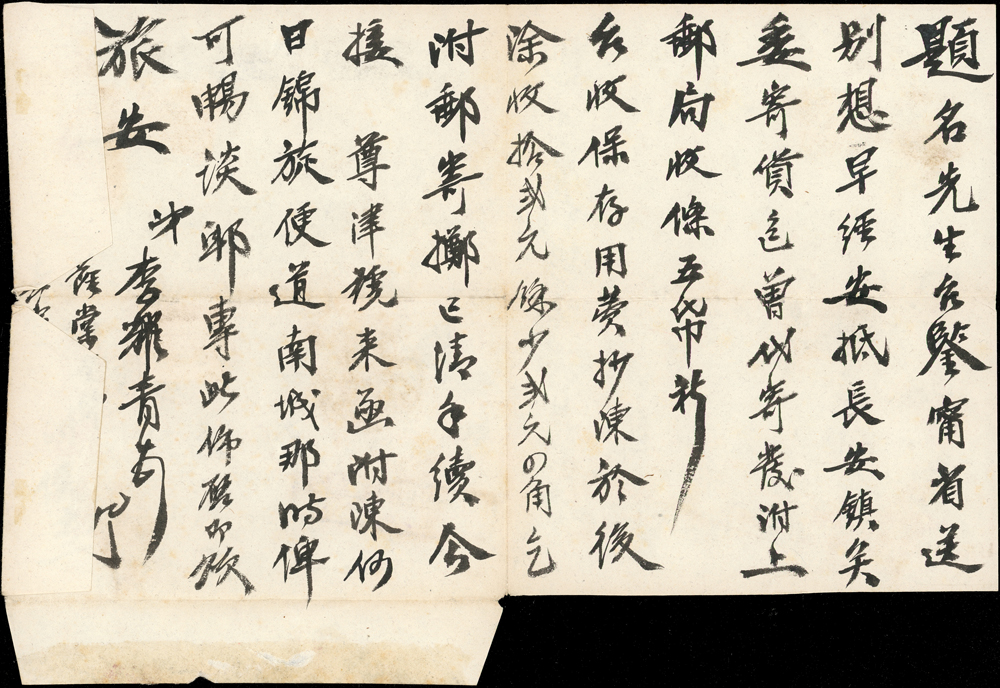 題名先生台鑒甯省送
別想早經安抵長安鎮矣
委寄貨包曾代寄發附上
郵局收條五帋祈
台收保存用費抄陳於後
除收拾弍元餘少弍元四角乞
附郵寄擲已清手續今
接 尊津號来函附陳何
日錦旋便道南城那時俾
可暢談耶專此佈啟即頌
旅安
弟李 青